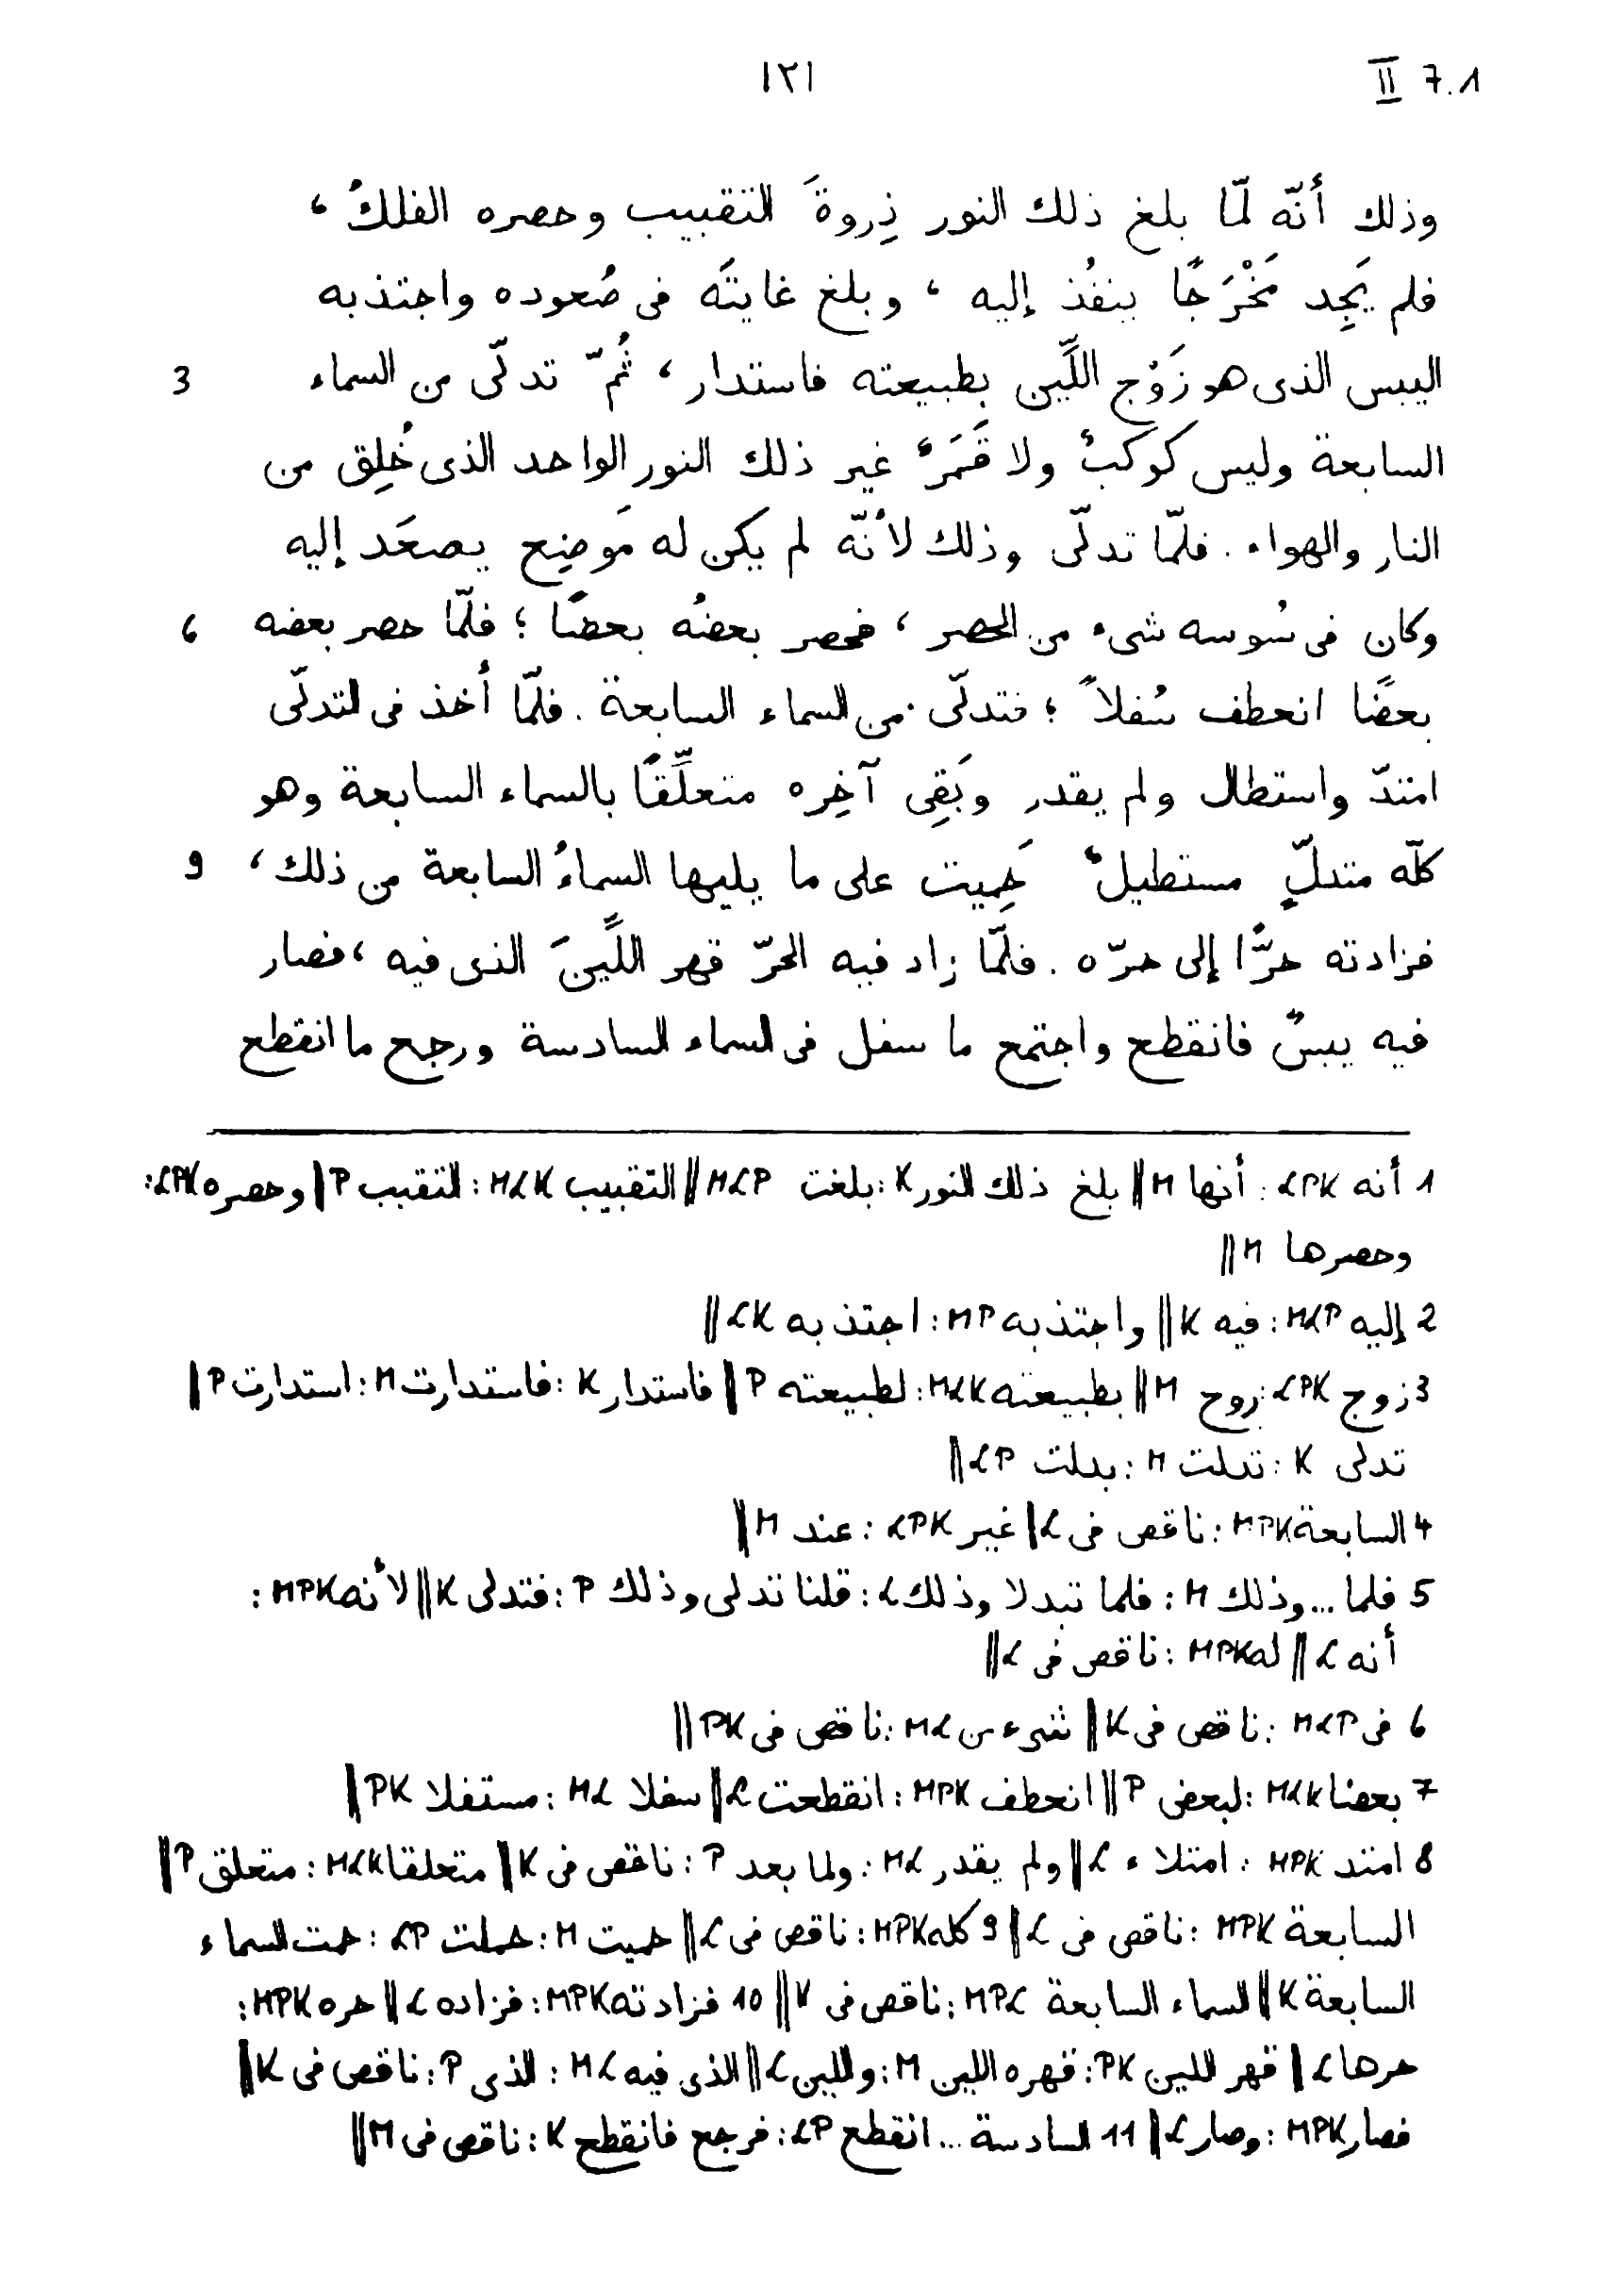 ١٢١
II 7.1
وذلك أنّه لمّا بلغ ذلك النور ذِروةَ التقبيب وحصره الفلكُ ،
فلم يَجِد مَخْرَجًا ينفُذ إليه ، وبلغ غايتَه فى صُعوده واجتذبه
اليبس الذى هو زَوْج اللَّين بطبيعته فاستدار ، ثُمّ تدلّى من السماء
3
السابعة وليس كوكبٌ ولا قَمَرٌ غير ذلك النور الواحد الذى خُلِق من
النار والهواء . فلمّا تدلّى وذلك لأنّه لم يكن له مَوضِع يصعَد إليه
وكان فى سُوسه شىء من الحصر ، فحصر بعضُه بعضًا ؛ فلمّا حصر بعضه
6
بعضًا انعطف سُفلاً ؛ فتدلّى من السماء السابعة . فلمّا أخذ فى التدلّى
امتدّ واستطال ولم يقدر وبَقِى آخِره متعلِّقًا بالسماء السابعة وهو
كلّه متدلٍّ مستطيلٌ حَمِيت على ما يليها السماءُ السابعة من ذلك ،
9
فزادته حرًّا إلى حرّه . فلمّا زاد فيه الحرّ قهر اللَّينَ الذى فيه ، فصار
فيه يبسٌ فانقطع واجتمع ما سفل فى السماء السادسة ورجع ما انقطع
1 أنه LPK : أنها M || بلغ ذلك النور K : بلغت MLP || التقبيب MLK : التقبب P || وحصره LPK :
وحصرها M ||
2 إليه MLP : فيه K || واجتذبه MP : اجتذبه LK ||
3 زوج LPK : روح M || بطبيعته MLK : لطبيعته P || فاستدار K : فاستدارت M : استدارت P ||
تدلى K : تدلت M : بدلت LP ||
4 السابعة MPK : ناقص فى L || غير LPK : عند M ||
5 فلما ... وذلك M : فلما تبدلا وذلك L : قلنا تدلى وذلك P : فتدلى K || لأنه MPK :
أنه L || له MPK : ناقص فى L ||
6 فى MLP : ناقص فى K || شىء من ML : ناقص فى PK ||
7 بعضا MLK : لبعض P || انعطف MPK : انقطعت L || سفلا ML : مستفلا PK ||
8 امتد MPK : امتلاء L || ولم يقدر ML : ولما بعد P : ناقص فى K || متعلقا MLK : متعلق P ||
السابعة MPK : ناقص فى L || 9 كله MPK : ناقص فى L || حميت M : حملت LP : حمت السماء
السابعة K || السماء السابعة MPL : ناقص فى K || 10 فزادته MPK : فزاده L || حره MPK :
حرها L || قهر اللين PK : قهره اللين M : واللين L || الذى فيه ML : الذى P : ناقص فى K ||
فصار MPK : وصار L || 11 السادسة ... انقطع LP : فرجع فانقطع K : ناقص فى M ||